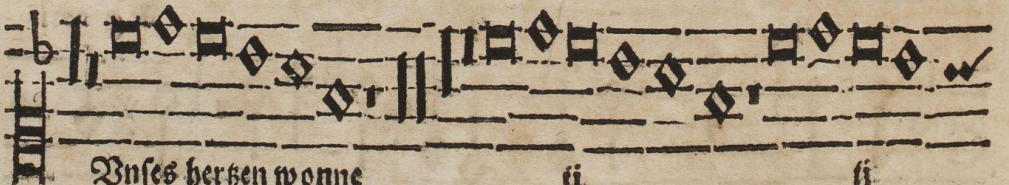 Vnſes hertzen wonne ij ij